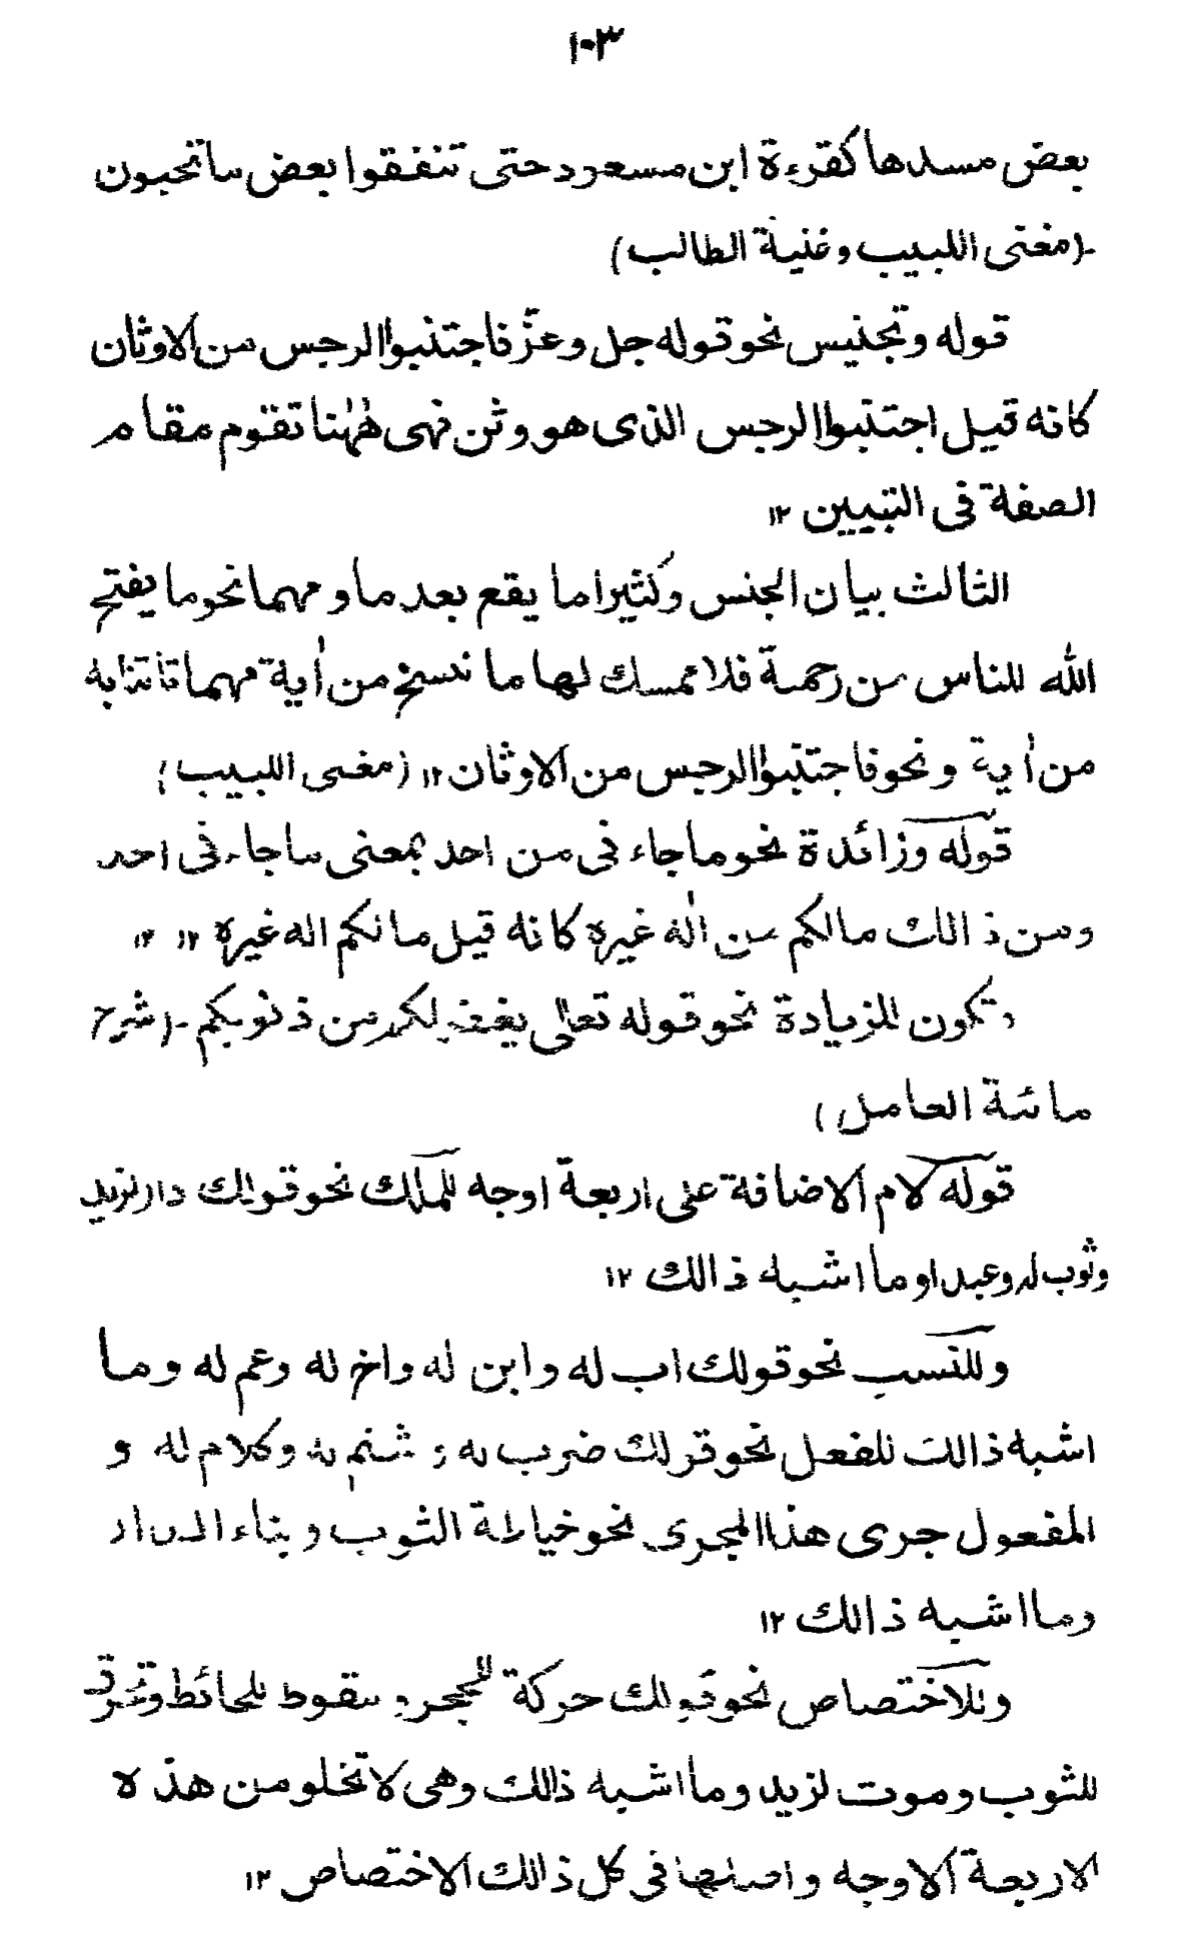 ١٠٣
بعض مسدها كقرءة ابن مسعود حتى تنفقوا بعض ما تحبون
-(مغنى اللبيب وغنية الطالب)
قوله وتجنيس نحو قوله جل وعزّ فاجتنبوا الرجس من الاوثان
كانه قيل اجتنبوا الرجس الذى هو وثن فهى هٰهٰنا تقوم مقام
الصفة فى التبيين ١٢
الثالث بيان الجنس وكثيرا ما يقع بعد ما و مهما نحو ما يفتح
الله للناس من رحمة فلا ممسك لها ما ننسخ من اٰية مهما تاتنا به
من اٰية ونحو فاجتنبوا الرجس من الاوثان ١٢ (مغنى اللبيب)
قوله وزائدة نحو ما جاء نى من احد بمعنى ما جاء نى احد
ومن ذالك مالكم من الٰه غيره كانه قيل مالكم اله غيره ١٢ ١٢
وتكون للزيادة نحو قوله تعالى يغفر لكم من ذنوبكم -(شرح
مائة العامل)
قوله لام الاضافة على اربعة اوجه للملك نحو قولك دار لزيد
وثوب له وعبد او ما اشبه ذالك ١٢
وللنسب نحو قولك اب له وابن له واخ له وعم له وما
اشبه ذالك للفعل نحو قولك ضرب له و شتم له وكلام له و
المفعول جرى هذا المجرى نحو خياطة الثوب وبناء الدار
وما اشبه ذالك ١٢
وللاختصاص نحو قولك حركة للحجر و سقوط للحائط وتخرق
للثوب وموت لزيد وما اشبه ذالك وهى لا تخلو من هذه
الاربعة الاوجه واصلها فى كل ذالك الاختصاص ١٢